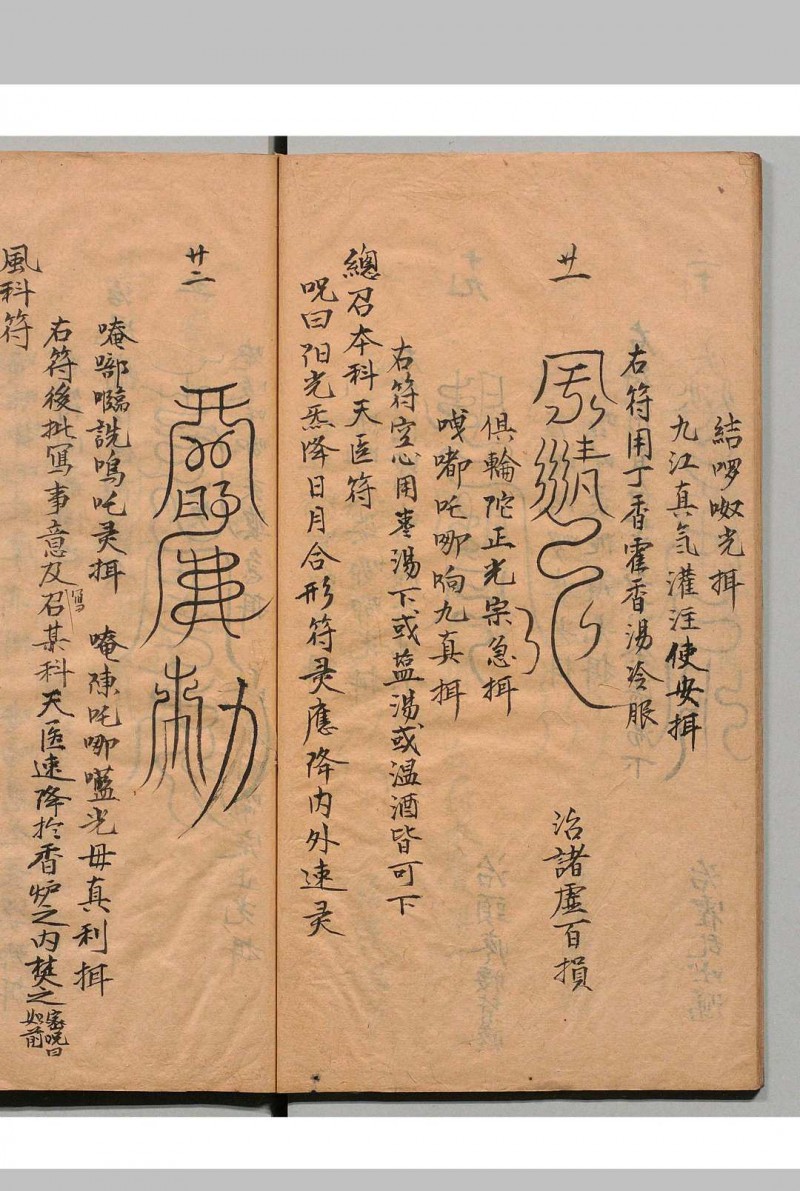 結啰呶光揖
九江真氣灌注使安揖
右符用丁香霍香湯冷服
廿一
治諸虛百損
俱輪陀正光宗急揖
哦嘟吒哪响九真揖
右符空心用棗湯下或盐湯或温酒皆可下
總召本科天医符
咒曰阳光炁降日月合形符灵應降内外速灵
廿二
唵啣㘕詵鳴吒灵揖 唵陳吒哪囕光毋真利揖
右符後批寫事意及召某科天医速降扵香炉之内焚之密咒曰如前
寫
風科符